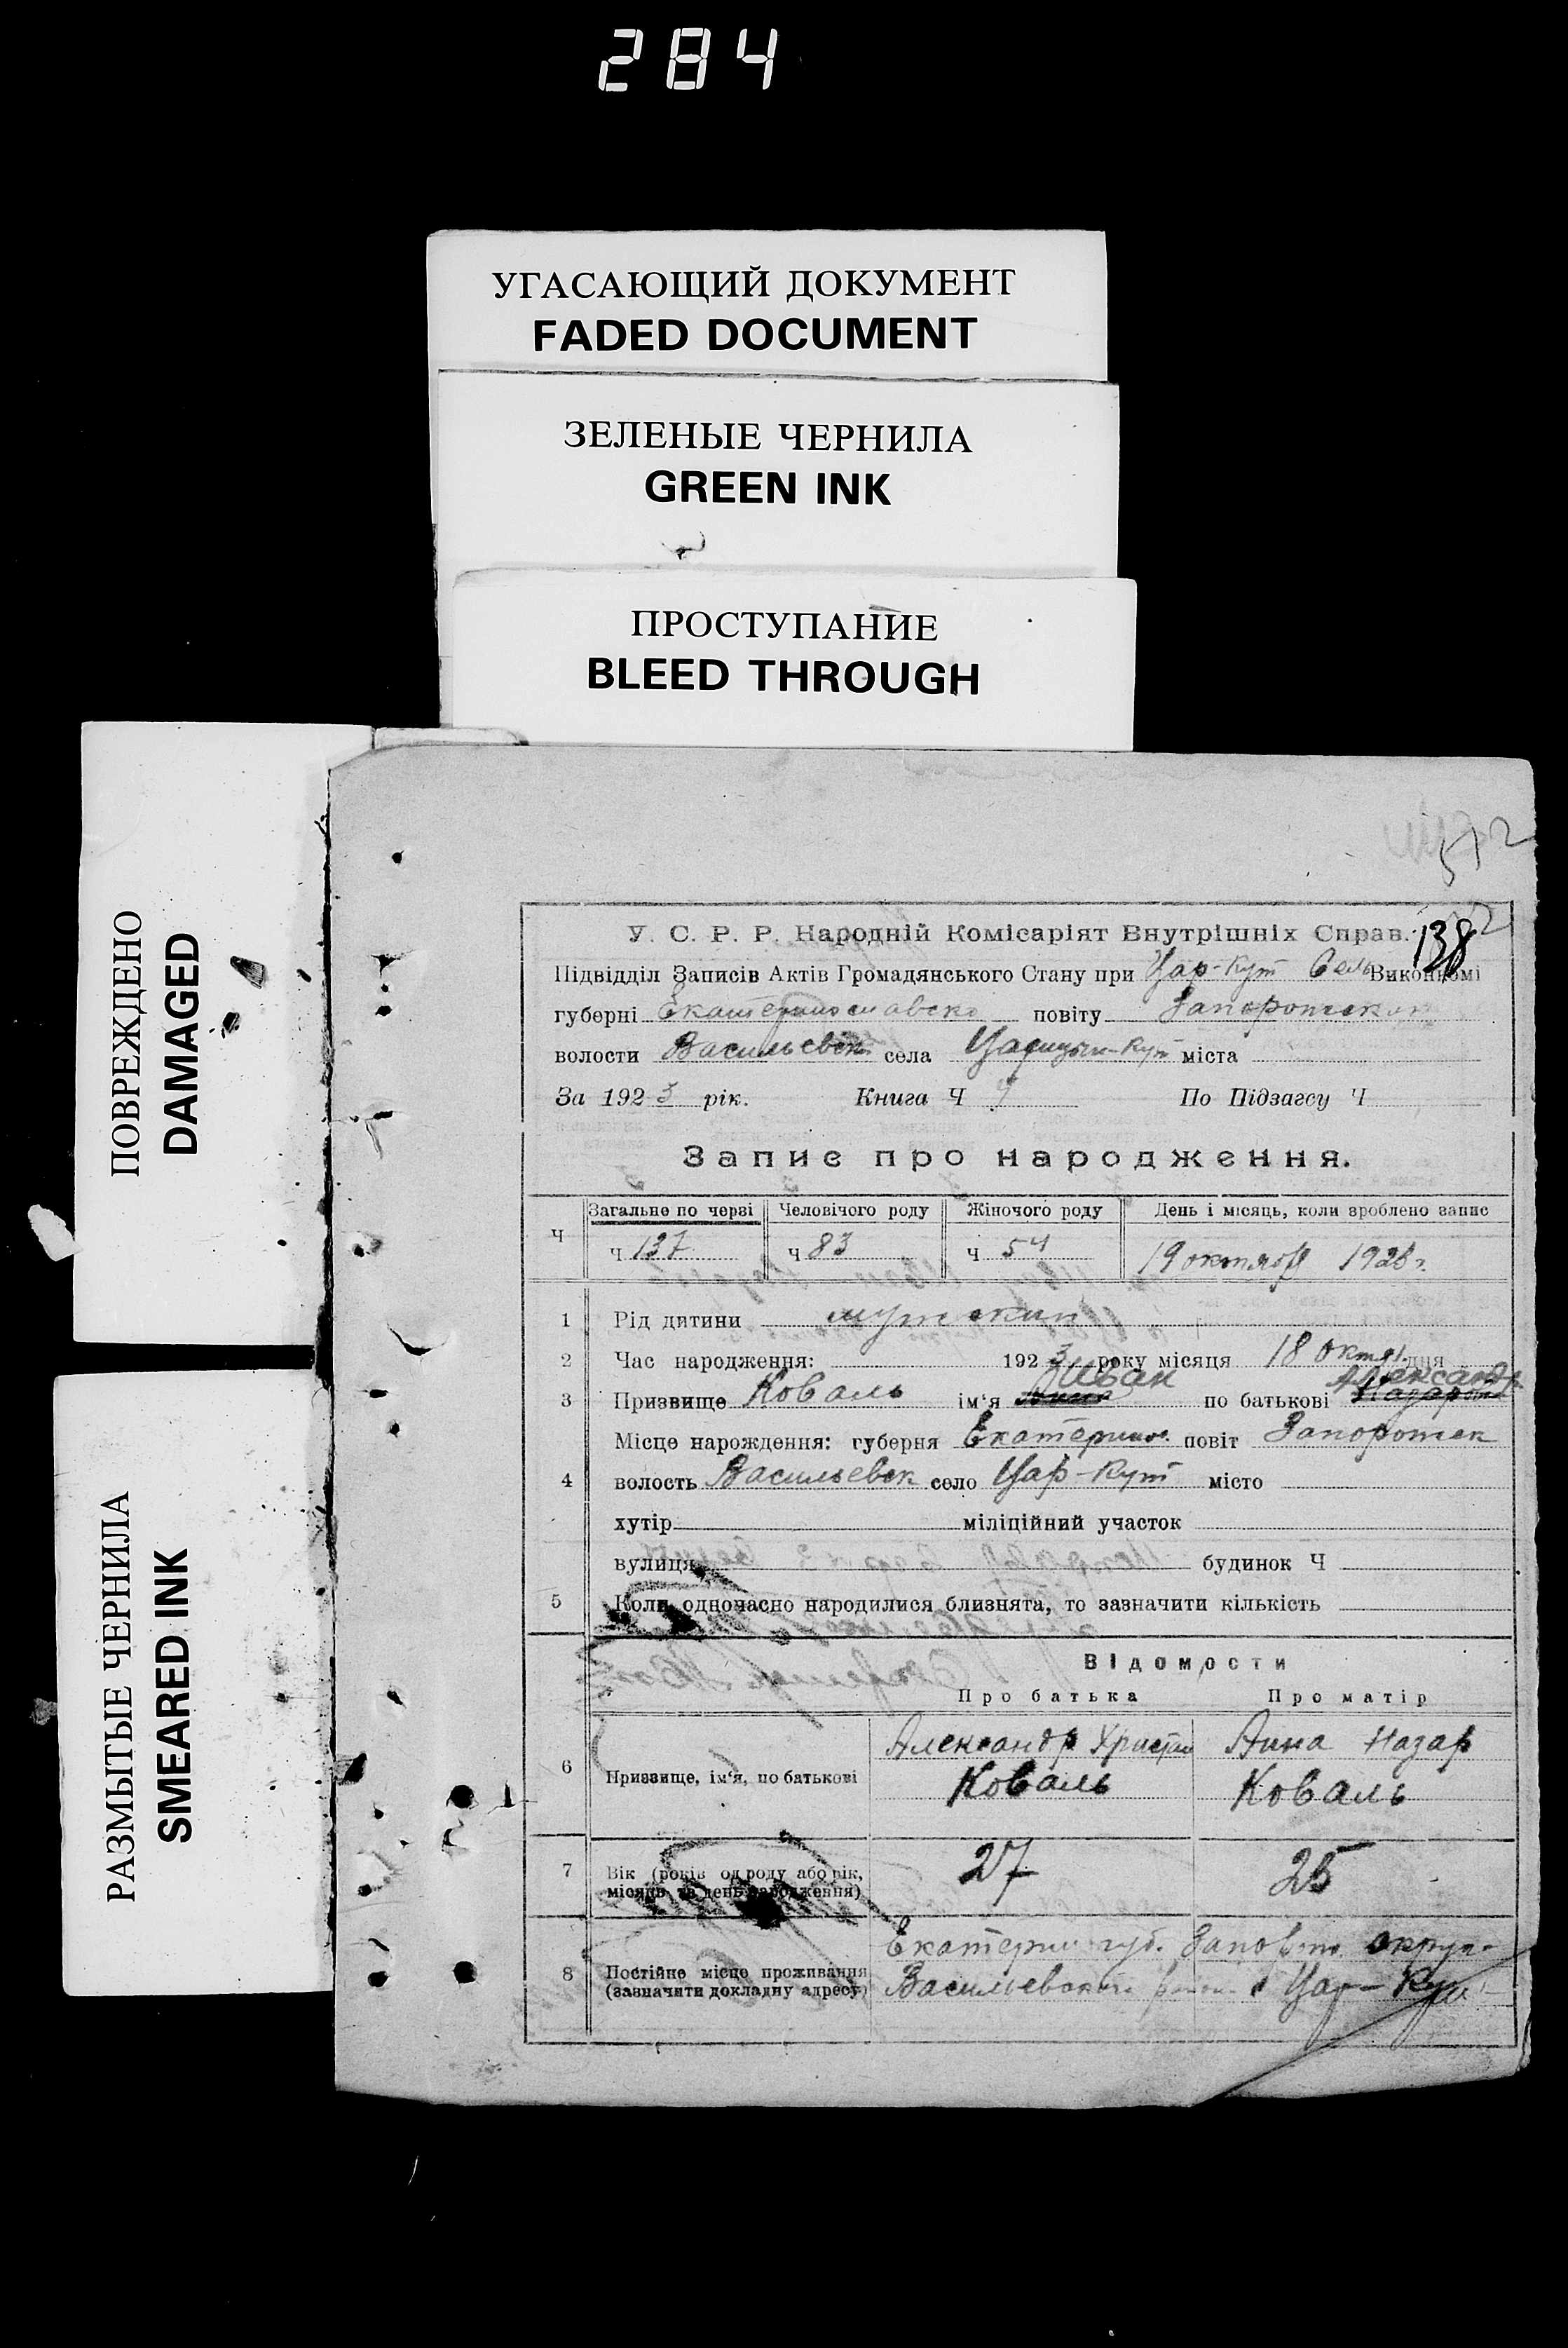 284
УГАСАЮЩИЙ ДОКУМЕНТ
FADED DOCUMENT
ЗЕЛЕНЫЕ ЧЕРНИЛА
GREEN INK
ПРОСТУПАНИЕ
BLEED THROUGH
ПОВРЕЖДЕНО
DAMAGED
РАЗМЫТЫЕ ЧЕРНИЛА
SMEARED INK
572
138
У. С. Р. Р. Народній Комісаріят Внутрішніх Справ.
Підвідділ Записів Актів Громадянського Стану при Цар-Кут Сель Виконкомі
губерні Екатеринославско повіту Запорожск
волости Васильевск села Царицын-Кут міста
За 1923 рік. Книга Ч По Підзагсу Ч
Запис про народження.
Ч Загальне по черзі Человічого роду Жіночого роду День і місяць, коли зроблено запис
Ч 137 Ч 83 Ч 54 19 октября 1923 г.
1 Рід дитини мужский
2 Час народження: 1923 року місяця 18 октя дня
Иван Александр
3 Призвище Коваль ім'я по батькові Назаров
Місце народження: губерня Екатерин. повіт Запорожск
4 волость Васильевск село Цар-Кут місто
хутір міліційний участок
вулиця будинок Ч
5 Коли одночасно народилися близнята, то зазначити кількість
Відомости
Про батька Про матір
6 Призвище, ім'я, по батькові Александр Христиан Коваль Анна Назар Коваль
7 Вік (років од роду або рік, місяць та день народження) 27 25
8 Постійне місце проживання (зазначити докладну адресу)
Екатерин губ. Запорож. округа
Васильевского район Цар-Кут